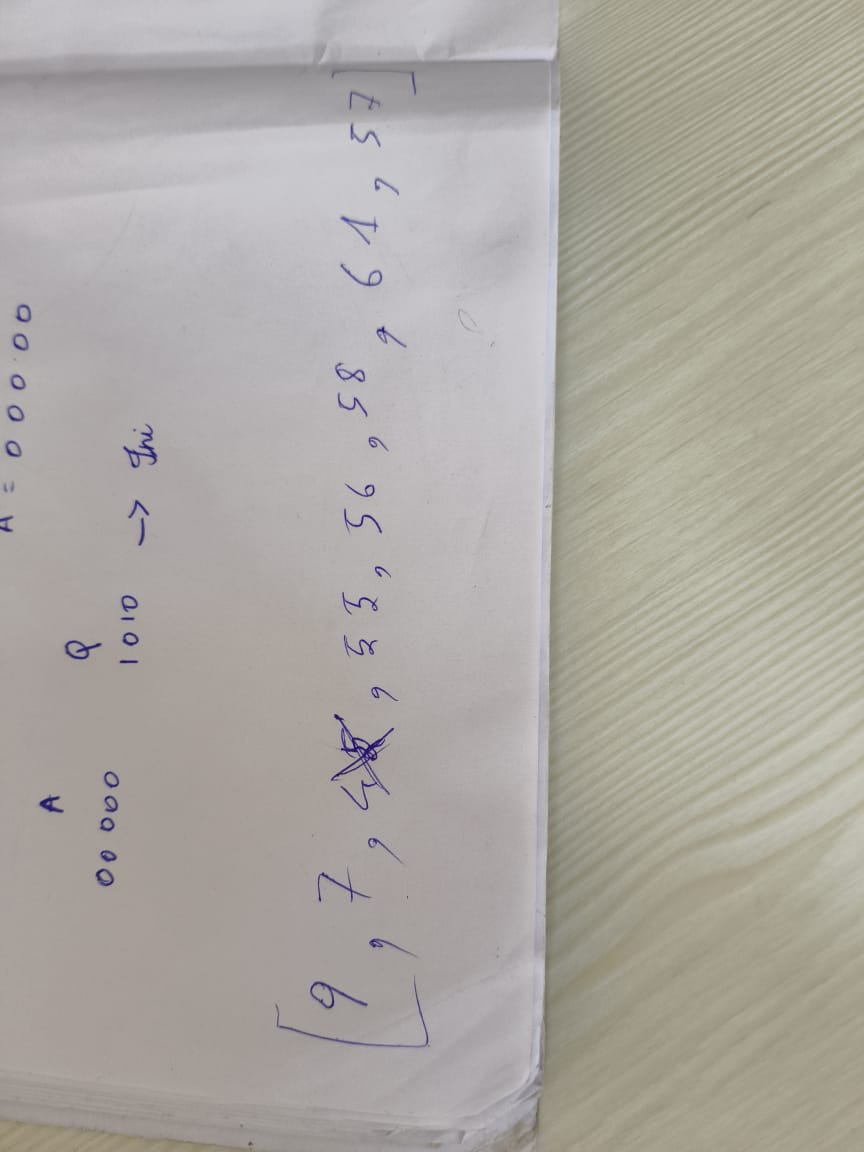 A = 00000
A Q
00000 1010 -> Ini
[9, 7, 5, 55, 56, 58, 61, 57]